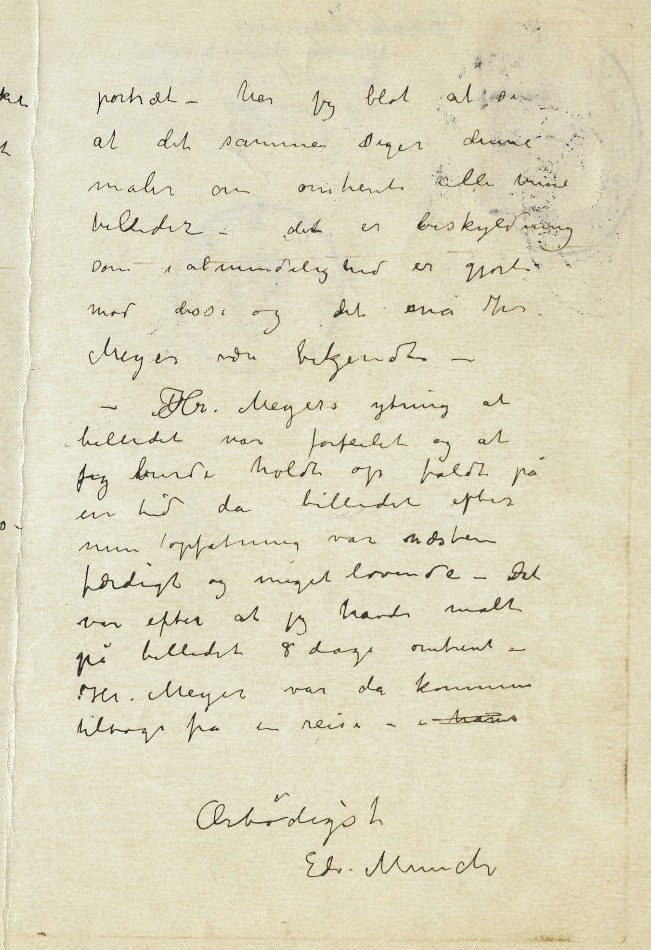 portræt – har jeg blot at si
at det samme siger denne
maler om omtrent alle mine
billeder – det er beskyldning
som i almindelighed er gjort
mod disse og det må Hr.
Meyer være bekjendt –
– Hr. Meyers ytring at
billedet var forfeilet og at
jeg burde holdt op faldt på
en tid da billedet efter
min opfatning var næsten
færdigt og meget lovende – Det
var efter at jeg havde malt
på billedet 8 dage omtrent –
Hr. Meyer var da kommen
tilbage fra en reise – hans
Ærbödigst
Edv. Munch